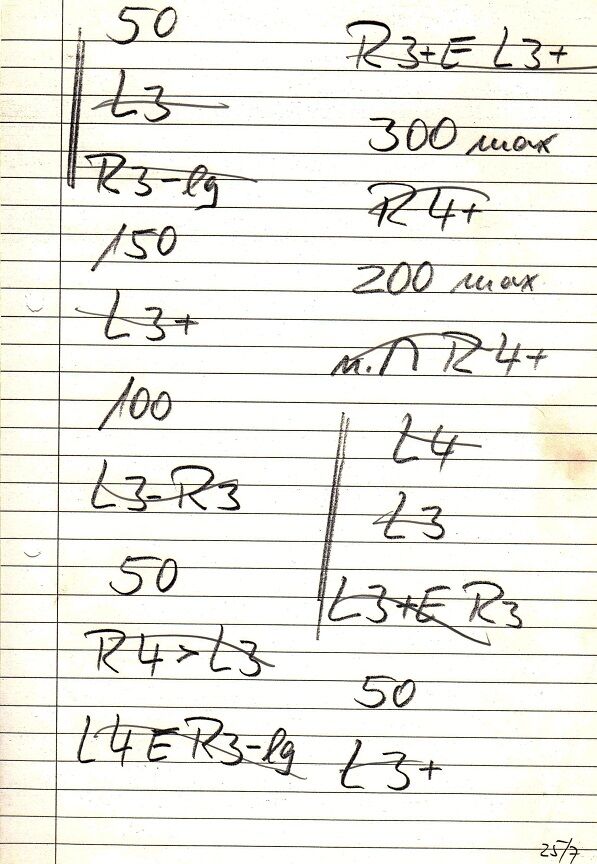 50
L3
R3-lg
150
L3+
100
L3-R3
50
R4>L3
L4 E R3-lg
R3+E L3+
300 max
R4+
200 max
R4+
L4
L3
L3+E R3
50
L3+
25/7